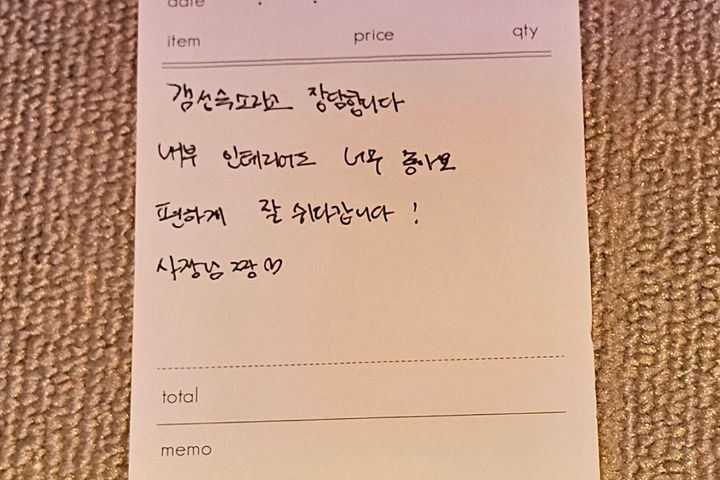 date
item price qty
갬성숙소라고 장담합니다
내부 인테리어도 너무 좋아요
편하게 잘 쉬다갑니다 !
사장님 짱♡
total
memo